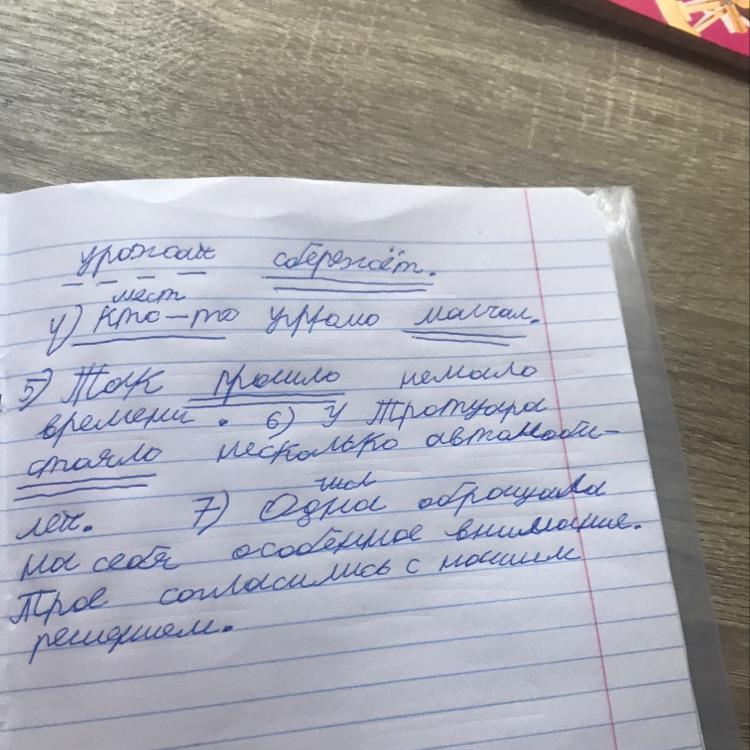 урожай сбережёт.
мест
4) Кто-то упрямо молчал.
5) Так прошло немало
времени. 6) У тротуара
стояло несколько автомоби-
лей.
числ
7) Одна обращала
на себя особенное внимание.
Трое согласились с нашим
решением.